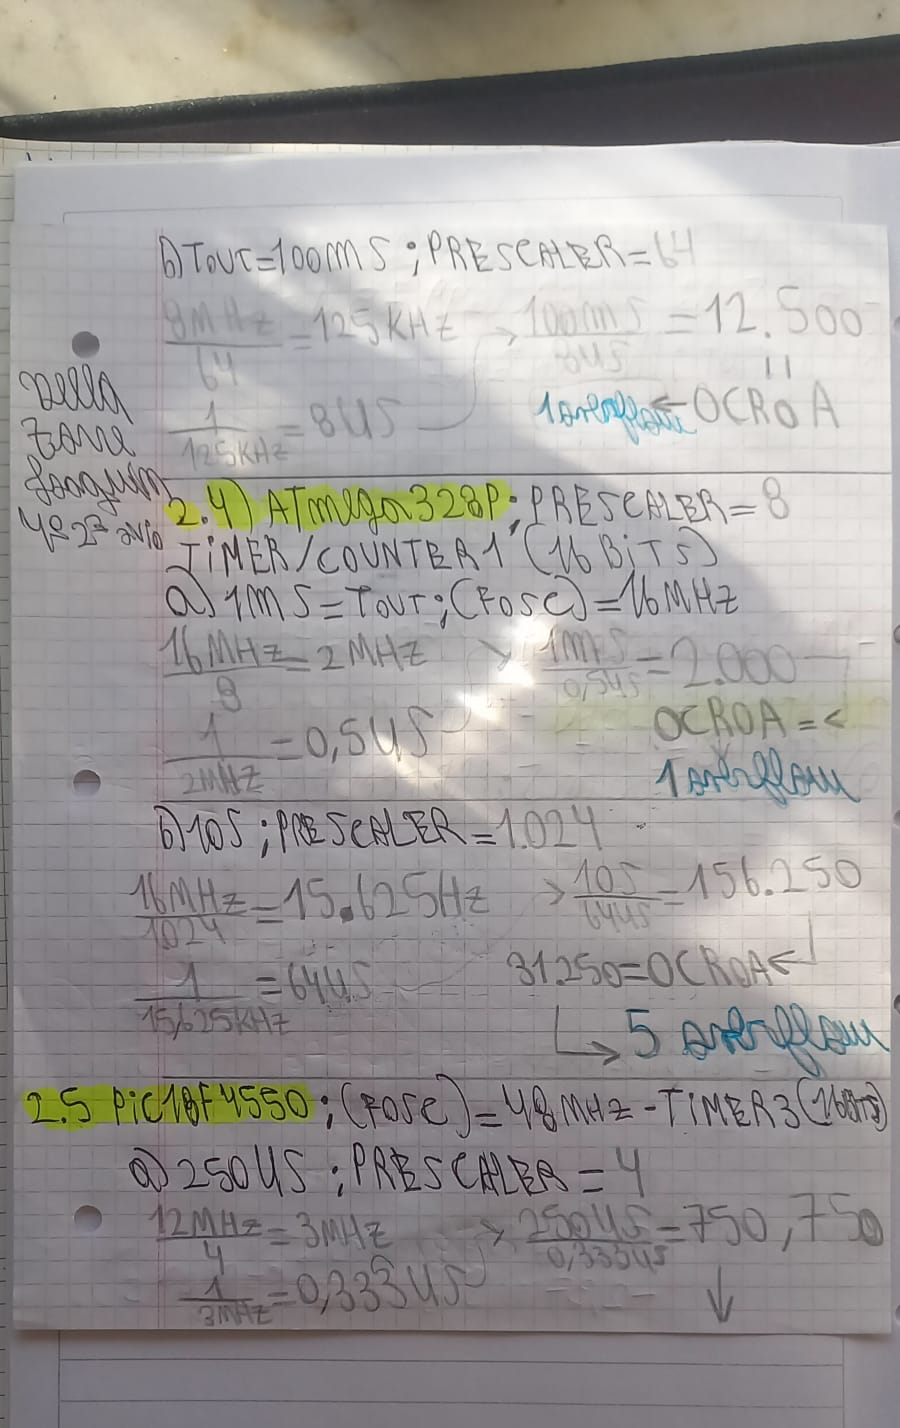 b) TOUT=100mS ; PRESCALER=64
8MHz/64 = 125KHz → 100mS/8US = 12.500
1/125KHz = 8US
1 overflow ← OCR0A
Della
Torre
Joaquin
4B 2º avio
2.4) ATmega328P ; PRESCALER=8
TIMER/COUNTER1 (16 BITS)
a) 1MS=TOUT ; (FOSC)=16MHz
16MHz/8 = 2MHz → 1MS/0,5US = 2.000
1/2MHz = 0,5US
OCR0A = <
1 overflow
b) 10S ; PRESCALER=1.024
16MHz/1024 = 15.625Hz → 10S/64US = 156.250
1/15,625KHz = 64US
31.250=OCR0A ←
↳ 5 overflow
2.5 PiC18F4550 ; (FOSC)=48MHz - TiMER3(16BiTS)
a) 250US ; PRESCALER = 4
12MHz/4 = 3MHz → 250US/0,333US = 750,750
1/3MHz = 0,333US ↓